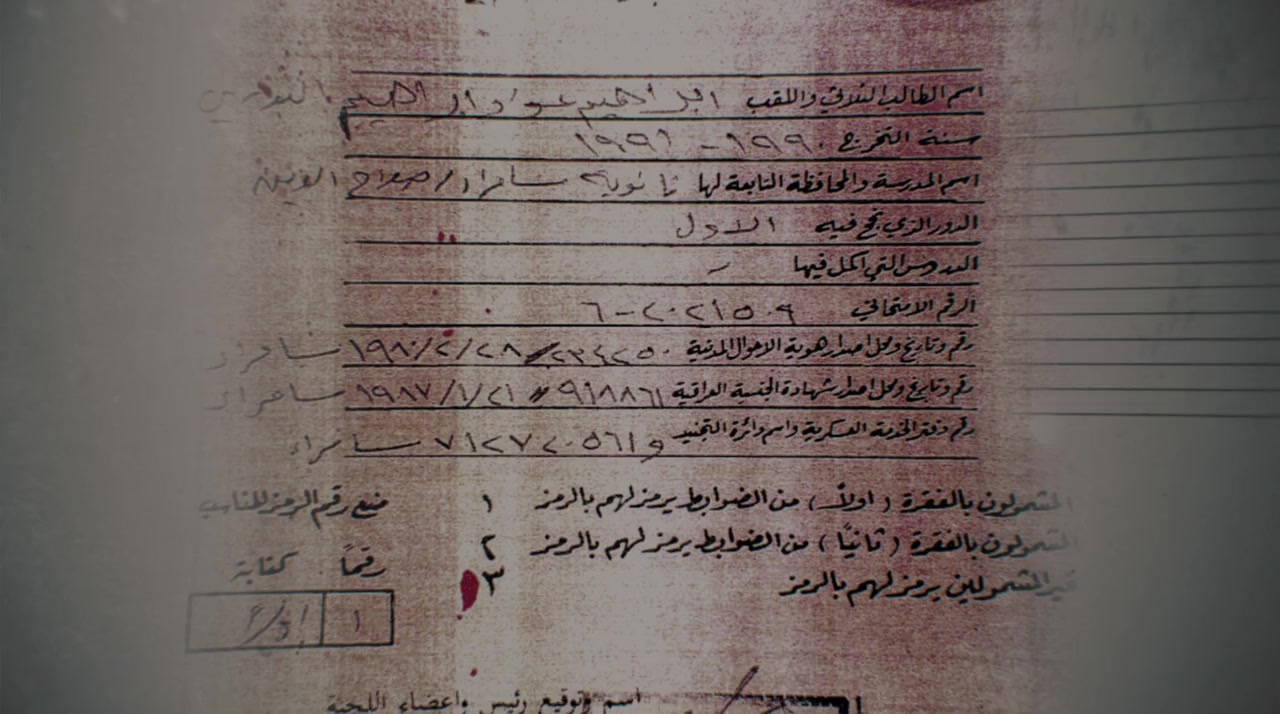 اسم الطالب الثلاثي واللقب ابراهيم عواد ابراهيم
سنة التخرج ١٩٩٠ - ١٩٩١
اسم المدرسة والمحافظة التابعة لها ثانوية سامراء / صلاح الدين
الدور الذي نجح فيه الاول
الدروس التي اكمل فيها -
الرقم الامتحاني
رقم وتاريخ ومحل اصدار هوية الاحوال المدنية ١٩٨٠/٢/٢٨ سامراء
رقم وتاريخ ومحل اصدار شهادة الجنسية العراقية ٩١٨٨٦١ // ١٩٨٧/١/٢١ سامراء
رقم دفتر الخدمة العسكرية واسم دائرة التجنيد سامراء
المشمولون بالفقرة ( اولاً ) من الضوابط يرمز لهم بالرمز ١ رقم الرمز المناسب
المشمولون بالفقرة ( ثانياً ) من الضوابط يرمز لهم بالرمز ٢
رقماً كتابة
غير المشمولين يرمز لهم بالرمز ٣
١
اسم وتوقيع رئيس واعضاء اللجنة